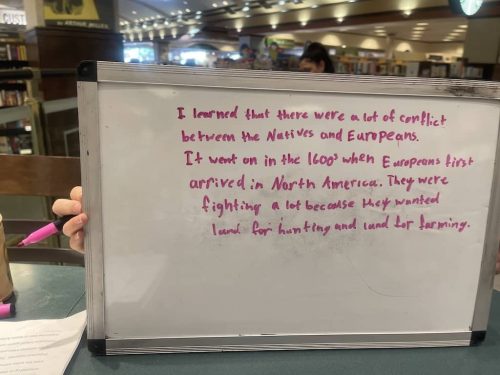 I learned that there were a lot of conflict
between the Natives and Europeans.
It went on in the 1600s when Europeans first
arrived in North America. They were
fighting a lot because they wanted
land for hunting and land for farming.